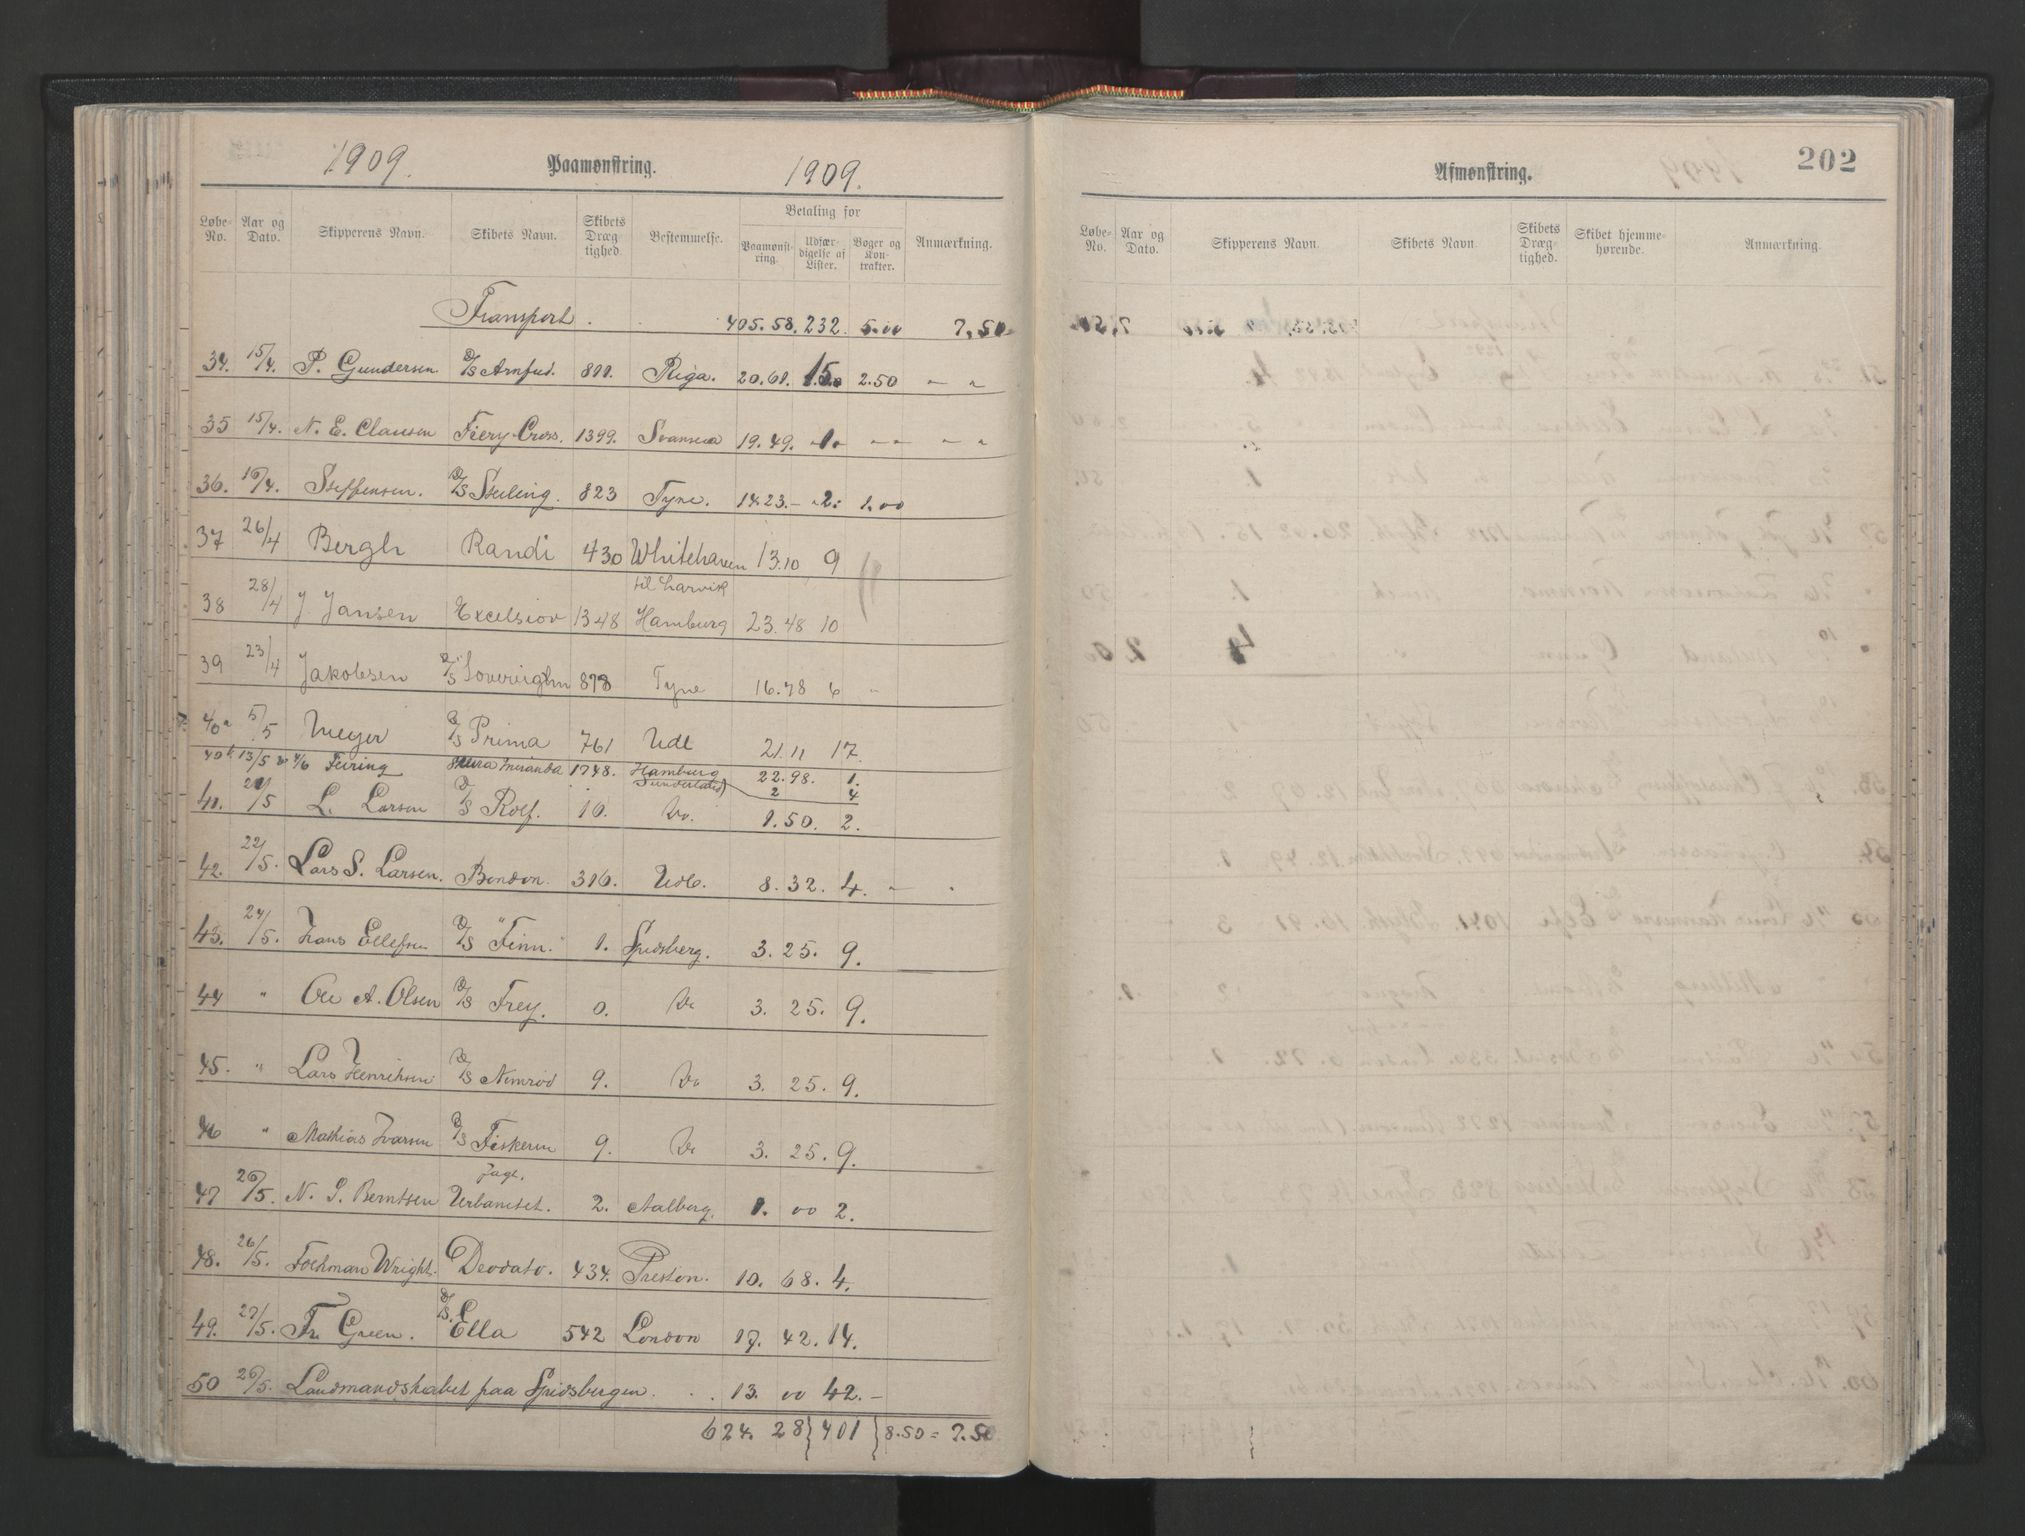 1909. Paamønstring. 1909.
Løbe-No. Aar og Dato. Skipperens Navn. Skibets Navn. Skibets Dræg-tighed. Bestemmelse. Betaling for Paamønst-ring. Udfær-digelse af Lister. Bøger og Kon-trakter. Anmærkning.
Transport. 405.58. 232. 5.00 7,50
34. 15/4. P. Gundersen D/S 811. Riga. 20.61. 15. 2.50 " "
35 15/4. N. E. Clausen Fiery Cross. 1399. Svansea 19.49. 1 " " " "
36. 16/4. Steffensen. D/S Sterling. 823 Tyne. 14.23.- 2. 1.00
37 26/4 Bergh Randi 430 Whitehaven 13.10 9
til Larvik
38 28/4 J. Jansen Excelsior 1348 Hamburg 23.48 10
39 23/4 Jakobsen D/S Sovereighn 878 Tyne 16.78 6 "
40a 5/5 Meyer D/S Prima 761 Udl 21.11 17.
40b 13/5 Feiring Miranda 1748. Hamburg 22.98. 1.
Sunderland 2 4
41. 21/5 L. Larsen D/S Rolf. 10. Do. 1.50. 2.
42. 22/5. Lars S. Larsen. Bondon. 316. Udl. 8.32. 4. " "
43. 24/5. Hans Ellefsen D/S "Finn." 1. Spidsberg. 3.25. 9.
44 " Ole A. Olsen D/S Frey. 0. Do 3.25. 9.
45. " Lars Henriksen D/S Nimrod 9. Do 3.25. 9.
46 " Mathias Ivarsen D/S Fiskeren 9. Do 3.25. 9.
Jagt.
47 26/5. N. S. Berntsen 2. Aalborg. 1.00 2.
48. 26/5. Wright. Deodato. 434. Preston. 10.68. 4.
49. 27/5. Fr. Green. D/S. Ella 542 London 17.42. 14.
50 26/5. Landmandskabet paa Spidsbergen. . . 13.00 42.-
624.28 } 401 } 8.50 = 7.50
Afmønstring. 202
Løbe-No. Aar og Dato. Skipperens Navn. Skibets Navn. Skibets Dræg-tighed. Skibet hjemme-hørende. Anmærkning.